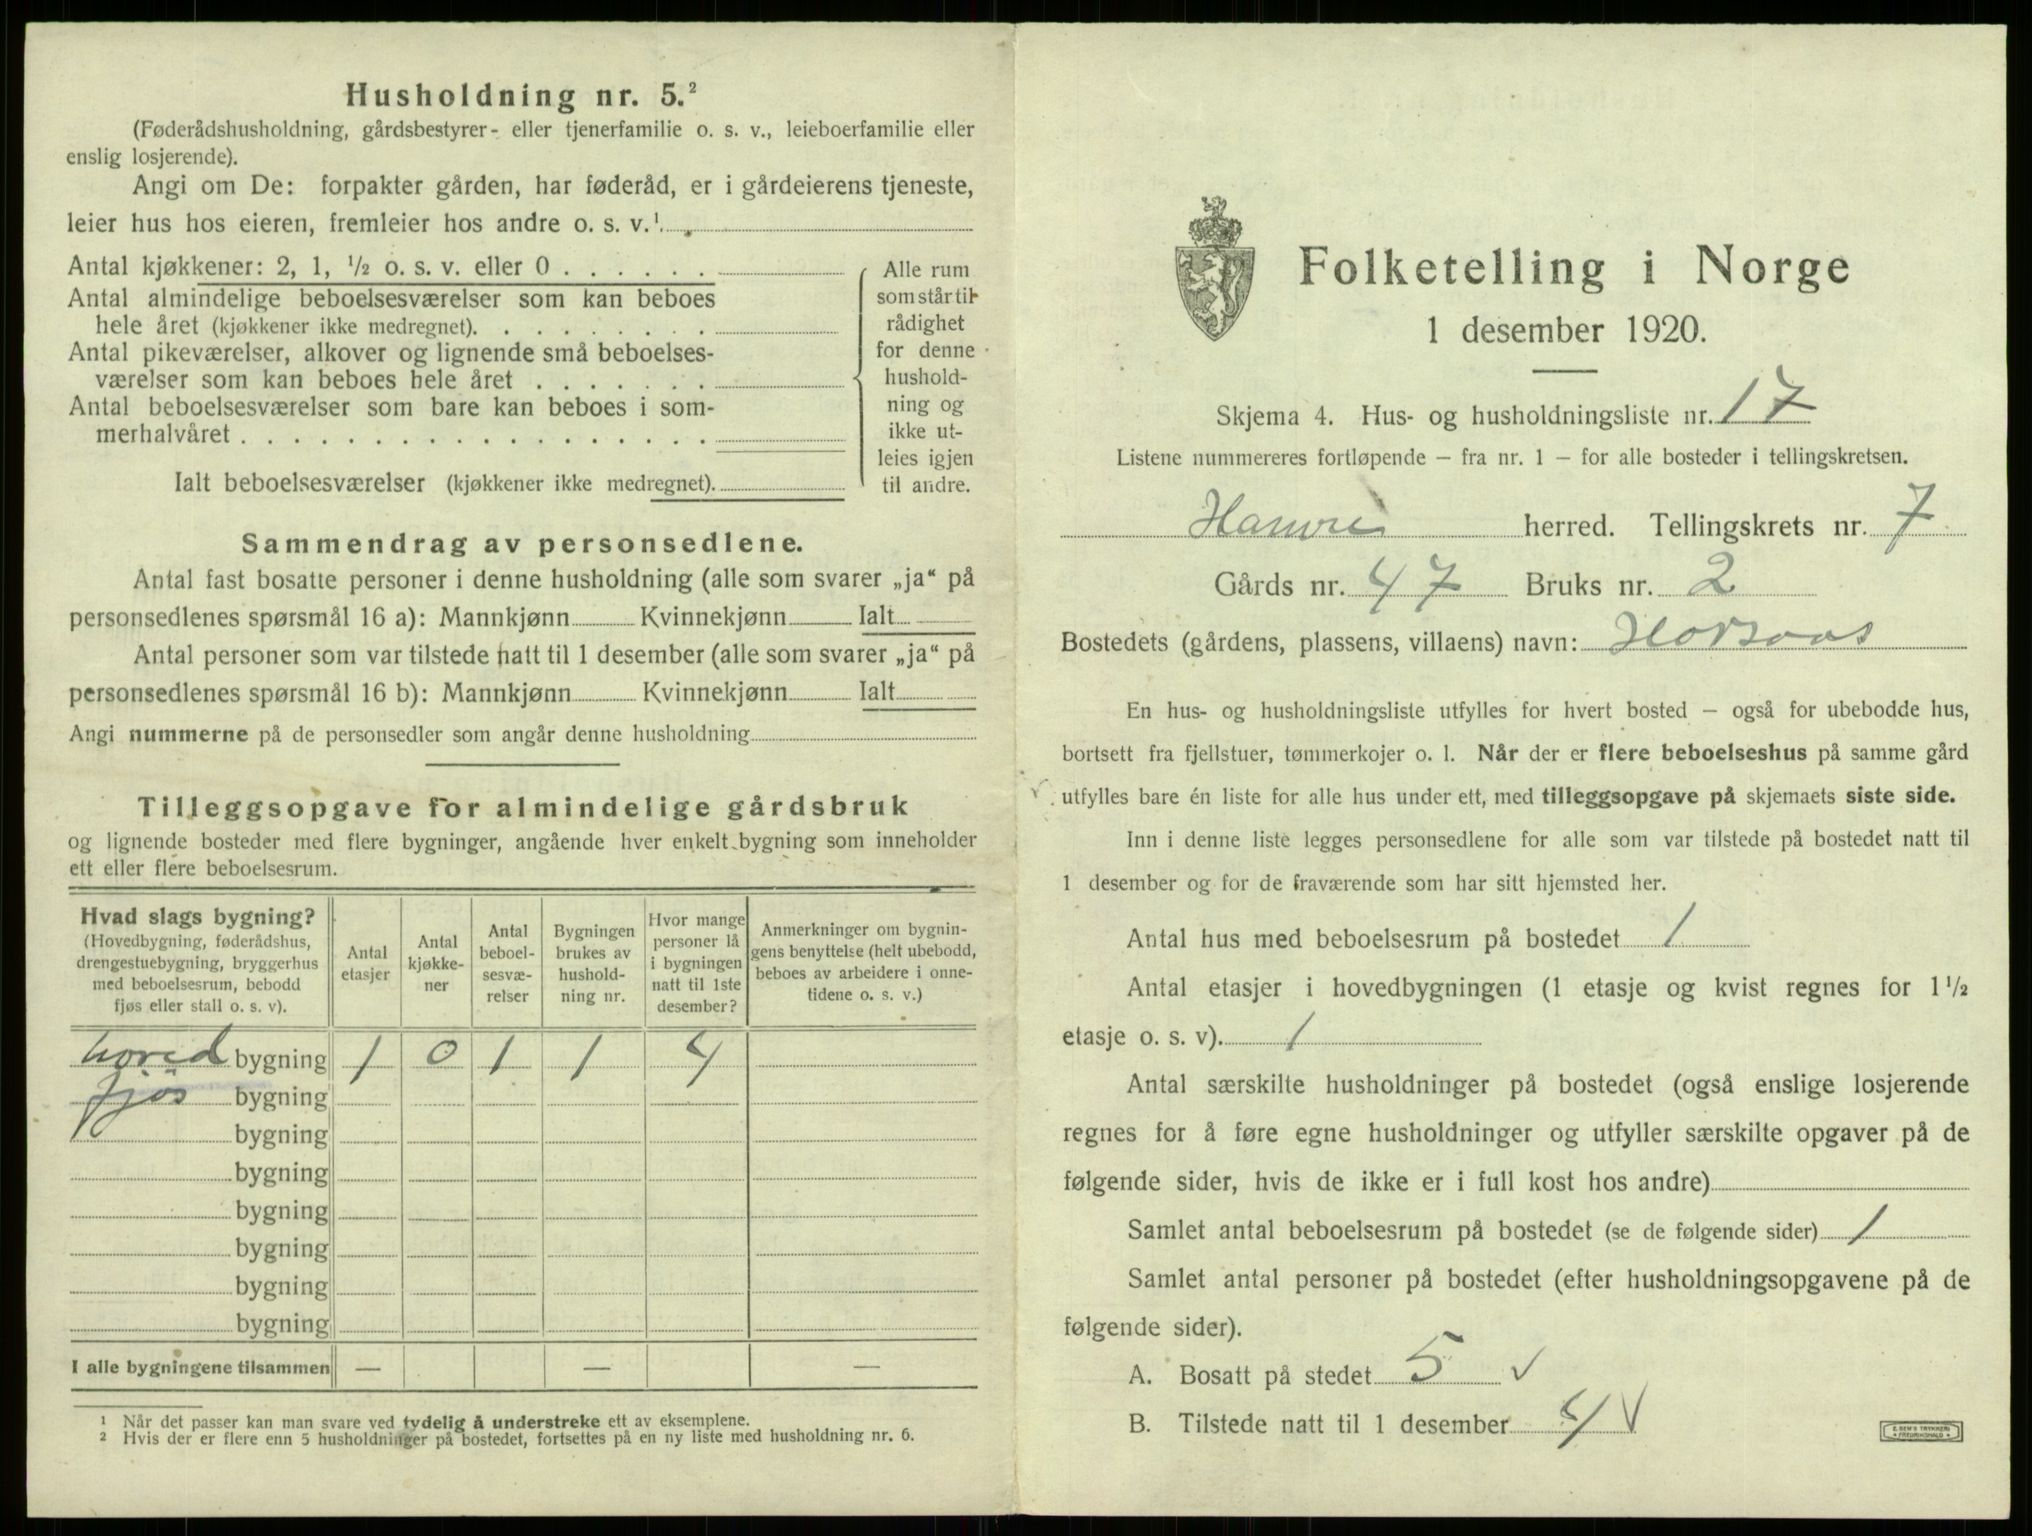 Husholdning nr. 5.²
(Føderådshusholdning, gårdsbestyrer- eller tjenerfamilie o. s. v., leieboerfamilie eller
enslig losjerende).
Angi om De: forpakter gården, har føderåd, er i gårdeierens tjeneste,
leier hus hos eieren, fremleier hos andre o. s. v.¹
Antal kjøkkener: 2, 1, ½ o. s. v. eller 0
Antal almindelige beboelsesværelser som kan beboes
hele året (kjøkkener ikke medregnet).
Antal pikeværelser, alkover og lignende små beboelses-
værelser som kan beboes hele året
Antal beboelsesværelser som bare kan beboes i som-
merhalvåret
Ialt beboelsesværelser (kjøkkener ikke medregnet).
Alle rum
som står til
rådighet
for denne
hushold-
ning og
ikke ut-
leies igjen
til andre.
Sammendrag av personsedlene.
Antal fast bosatte personer i denne husholdning (alle som svarer „ja“ på
personsedlenes spørsmål 16 a): Mannkjønn Kvinnekjønn Ialt
Antal personer som var tilstede natt til 1 desember (alle som svarer „ja“ på
personsedlenes spørsmål 16 b): Mannkjønn Kvinnekjønn Ialt
Angi nummerne på de personsedler som angår denne husholdning
Tilleggsopgave for almindelige gårdsbruk
og lignende bosteder med flere bygninger, angående hver enkelt bygning som inneholder
ett eller flere beboelsesrum.
Hvad slags bygning?
(Hovedbygning, føderådshus,
drengestuebygning, bryggerhus
med beboelsesrum, bebodd
fjøs eller stall o. s. v).
Antal
etasjer
Antal
kjøkke-
ner
Antal
beboel-
sesvæ-
relser
Bygningen
brukes av
hushold-
ning nr.
Hvor mange
personer lå
i bygningen
natt til 1ste
desember?
Anmerkninger om bygnin-
gens benyttelse (helt ubebodd,
beboes av arbeidere i onne-
tidene o. s. v.)
hoved bygning 1 0 1 1 4
fjøs bygning
bygning
bygning
bygning
bygning
bygning
bygning
I alle bygningene tilsammen — — —
¹ Når det passer kan man svare ved tydelig å understreke ett av eksemplene.
² Hvis der er flere enn 5 husholdninger på bostedet, fortsettes på en ny liste med husholdning nr. 6.
Folketelling i Norge
1 desember 1920.
Skjema 4. Hus- og husholdningsliste nr. 17
Listene nummereres fortløpende – fra nr. 1 – for alle bosteder i tellingskretsen.
Hamre herred. Tellingskrets nr. 7
Gårds nr. 47 Bruks nr. 2
Bostedets (gårdens, plassens, villaens) navn: Horsaas
En hus- og husholdningsliste utfylles for hvert bosted – også for ubebodde hus,
bortsett fra fjellstuer, tømmerkojer o. l. Når der er flere beboelseshus på samme gård
utfylles bare én liste for alle hus under ett, med tilleggsopgave på skjemaets siste side.
Inn i denne liste legges personsedlene for alle som var tilstede på bostedet natt til
1 desember og for de fraværende som har sitt hjemsted her.
Antal hus med beboelsesrum på bostedet 1
Antal etasjer i hovedbygningen (1 etasje og kvist regnes for 1 ½
etasje o. s. v). 1
Antal særskilte husholdninger på bostedet (også enslige losjerende
regnes for å føre egne husholdninger og utfyller særskilte opgaver på de
følgende sider, hvis de ikke er i full kost hos andre)
Samlet antal beboelsesrum på bostedet (se de følgende sider) 1
Samlet antal personer på bostedet (efter husholdningsopgavene på de
følgende sider).
A. Bosatt på stedet 5 ✓
B. Tilstede natt til 1 desember 4 ✓